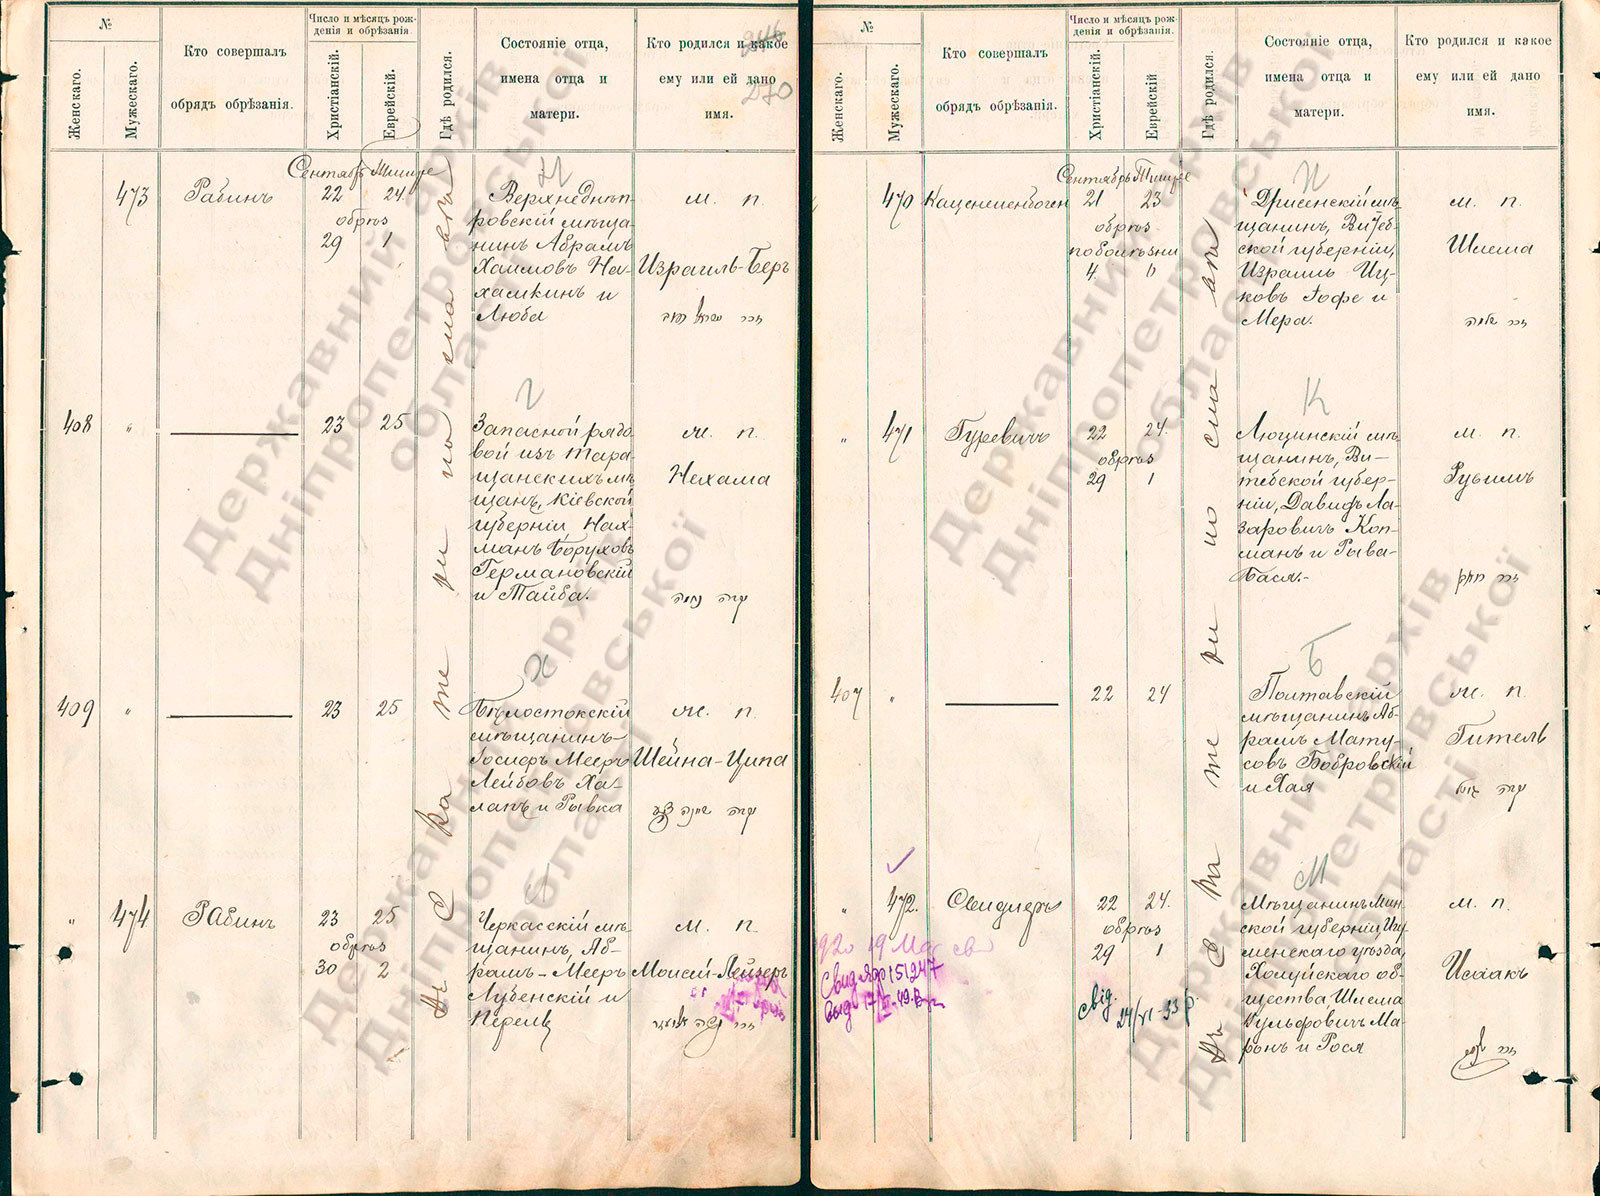 №
Женскаго.
Мужескаго.
Кто совершалъ
обрядъ обрѣзанія.
Число и мѣсяцъ рож-
денія и обрѣзанія.
Христіанскій.
Еврейскій.
Гдѣ родился.
Состояніе отца,
имена отца и
матери.
Кто родился и какое
ему или ей дано
имя.
270
Сентябрь Тишре
Н
473 Рабинъ 22 24
обрѣз
29 1
Верхнеднѣп-
ровскій мѣща-
нинъ Абрамъ
Хаимовъ На-
хамкинъ и
Люба
м. п.
Израиль-Беръ
זכר ישראל בער
Г
408 „ 23 25
Запасной рядо-
вой изъ Тара-
щанскихъ мѣ-
щанъ, Кіевской
губерніи Нах-
манъ Боруховъ
Германовскій
и Тайба.
ж. п.
Нехама
נקבה נחמה
Х
409 „ 23 25
Бѣлостокскій
мѣщанинъ
Іосифъ Мееръ
Лейбовъ Ха-
лапъ и Рывка
ж. п.
Шейна-Ципа
נקבה שיינה
Л
„ 474 Рабинъ 23 25
обрѣз
30 2
Черкасскій мѣ-
щанинъ, Аб-
рамъ-Мееръ
Лубенскій и
Перель
м. п.
Моисей-Лейзеръ
זכר משה אליעזר
Въ Екатеринославѣ
№
Женскаго.
Мужескаго.
Кто совершалъ
обрядъ обрѣзанія.
Число и мѣсяцъ рож-
денія и обрѣзанія.
Христіанскій.
Еврейскій
Гдѣ родился.
Состояніе отца,
имена отца и
матери.
Кто родился и какое
ему или ей дано
имя.
Сентябрь Тишре
И
470 Каценеленбоген 21 23
обрѣз
по болѣзни
4
Дрисенскій мѣ-
щанинъ, Витеб-
ской губерніи,
Израиль Иц-
ковъ Іофе и
Мера.
м. п.
Шлема
זכר שלמה
К
„ 471 Гуревичъ 22 24.
обрѣз
29 1
Люцинскій мѣ-
щанинъ, Ви-
тебской губер-
ніи, Давидъ Ла-
заровичъ Коп-
манъ и Рыва-
Бася.-
м. п.
Рувимъ
זכר ראובן
Б
407 „ 22 24
Полтавскій
мѣщанинъ Аб-
рамъ Мату-
совъ Бобровскій
и Хая
ж. п.
Гитель
נקבה גיטל
М
„ 472. Свидлеръ 22 24.
обрѣз
29 1
Мѣщанинъ Мин-
ской губерніи Игу-
менскаго уѣзда,
Холуйскаго об-
щества Шлема
Вульфовичъ Ма-
ронъ и Рося
м. п.
Исаакъ
זכר יצחק
Свид ЯФ 151247
Свід.
Въ Екатеринославѣ
Державний архів
Дніпропетровської
області